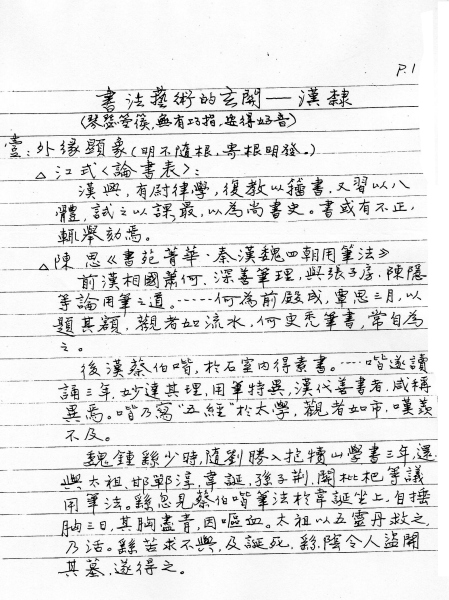 P.1
書法藝術的玄関——漢隸
(琴瑟箜篌,無有巧指,豈得好音)
壹:外緣顯象(明不隨根,寄根明發。)
△江式〈論書表〉:
漢興,有尉律學,復教以籀書,又習以八
體,試之以課最,以為尚書史。書或有不正,
輒舉劾焉。
△陳思《書苑菁華·秦漢魏四朝用筆法》
前漢相國蕭何,深善筆理,與張子房、陳隱
等論用筆之道。……何為前殿成,覃思三月,以
題其額,觀者如流水。何更禿筆書,常自為
之。
後漢蔡伯喈,於石室內得素書。……喈遂讀
誦三年,妙達其理,用筆特異,漢代善書者,咸稱
異焉。喈乃寫"五經"於太學,觀者如市,嘆羨
不及。
魏鍾繇少時,隨劉勝入抱犢山學書三年,還
與太祖、邯鄲淳、韋誕、孫子荊、関枇杷等議
用筆法。繇忽見蔡伯喈筆法於韋誕坐上,自捶
胸三日,其胸盡青,因嘔血。太祖以五靈丹救之,
乃活。繇苦求不與,及誕死,繇陰令人盜開
其墓,遂得之。